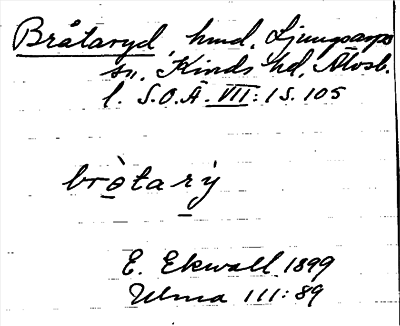 Bråtaryd, hmd, Ljungsarps
sn, Kinds hd, Älvsb.
l. S.O.Ä. VII:1 S. 105
bròtarỳ
E. Ekwall 1899
Ulma 111:89